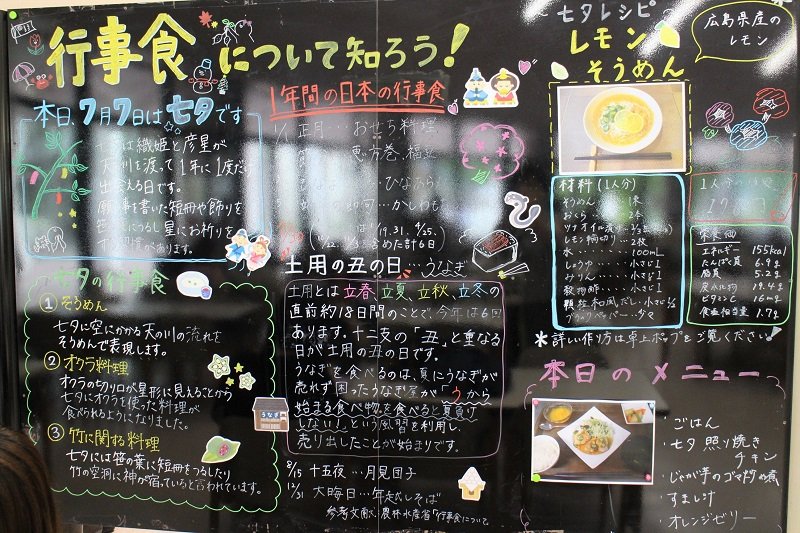 行事食について知ろう!
本日、7月7日は七夕です
七夕は織姫と彦星が
天の川を渡って1年に1度だけ
出会える日です。
願い事を書いた短冊や飾りを
笹につるし星にお祈りを
する習慣があります。
七夕の行事食
① そうめん
七夕に空にかかる天の川の流れを
そうめんで表現します。
② オクラ料理
オクラの切り口が星形に見えることから
七夕にオクラを使った料理が
食べられるようになりました。
③ 竹に関する料理
七夕には笹の葉に短冊をつるしたり
竹の空洞に神が宿っていると言われています。
1年間の日本の行事食
正月…おせち料理
恵方巻、福豆
土用の丑の日…うなぎ
土用とは立春、立夏、立秋、立冬の
直前約18日間のことで、今年は6回
あります。十二支の「丑」と重なる
日が土用の丑の日です。
うなぎを食べるのは、夏にうなぎが
売れず困ったうなぎ屋が「うから
始まる食べ物を食べると夏負け
しない」という風習を利用し、
売り出したことが始まりです。
うなぎ
8/15 十五夜…月見団子
12/31 大晦日…年越しそば
参考文献、農林水産省「行事食について
七夕レシピ
レモン
そうめん
広島県産の
レモン
材料(1人分)
そうめん
おくら
レモン輪切り…2枚
水…100mL
しょうゆ…小さじ1
みりん…小さじ1
穀物酢…小さじ1
顆粒和風だし…小さじ
ブラックペッパー…少々
栄養価
エネルギー 155kcal
たんぱく質 6.9g
脂質 5.2g
炭水化物 19.4g
ビタミンC 16mg
食塩相当量 1.7g
*詳しい作り方は卓上ポップをご覧ください!
本日のメニュー
・ごはん
・七夕照り焼き
チキン
・じゃが芋のゴマ炒め煮
・すまし汁
・オレンジゼリー